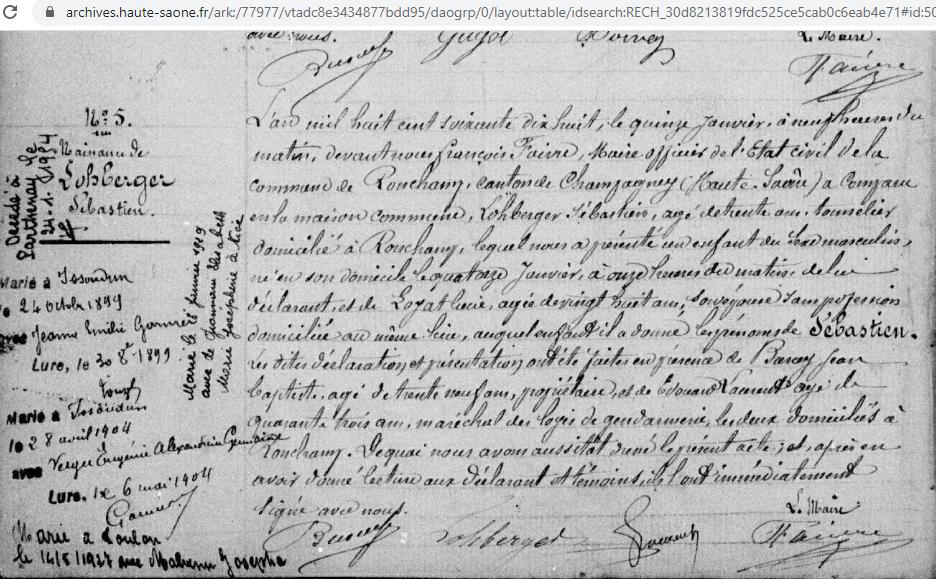 archives.haute-saone.fr/ark:/77977/vtadc8e3434877bdd95/daogrp/0/layout:table/idsearch:RECH_30d8213819fdc525ce5cab0c6eab4e71#id:50
avec nous.
Le Maire.
Faivre
No 5.
Naissance de
Lohberger
Sébastien.
Décédé à
Parthenay le
Marié à Issoudun
le 24 octobre 1899
avec Jeanne Emilie
Lure, le 30 8bre 1899
Marié à Issoudun
le 28 avril 1904
avec Verger Eugénie Alexandrine Germaine
Lure, le 6 mai 1904
Marié à Toulon
le 14/5/1927 avec Josepha
Marié le 18 janvier 1919
avec Elisabeth
Marie Josephine
L'an mil huit cent soixante dix huit, le quinze Janvier, à neuf heures du
matin, devant nous François Faivre, Maire officier de l'Etat civil de la
commune de Ronchamp, canton de Champagney (Haute-Saône) a comparu
en la maison commune, Lohberger Sébastien, agé de trente ans, tonnelier
domicilié à Ronchamp, lequel nous a présenté un enfant du sexe masculin,
né en son domicile le quatorze Janvier, à onze heures du matin, de lui
déclarant, et de Loyat Lucie, agée de vingt huit ans, son épouse sans profession
domiciliée au même lieu, auquel enfant il a donné les prénoms de Sébastien.
Les dites déclaration et présentation ont été faites en présence de Jean
Baptiste, agé de trente neuf ans, propriétaire, et de Edouard agé de
quarante trois ans, maréchal des logis de gendarmerie, les deux domiciliés à
Ronchamp. De quoi nous avons aussitôt dressé le présent acte; et, après en
avoir donné lecture aux déclarant et témoins, ils l'ont immédiatement
signé avec nous.
Le Maire
Lohberger
Faivre